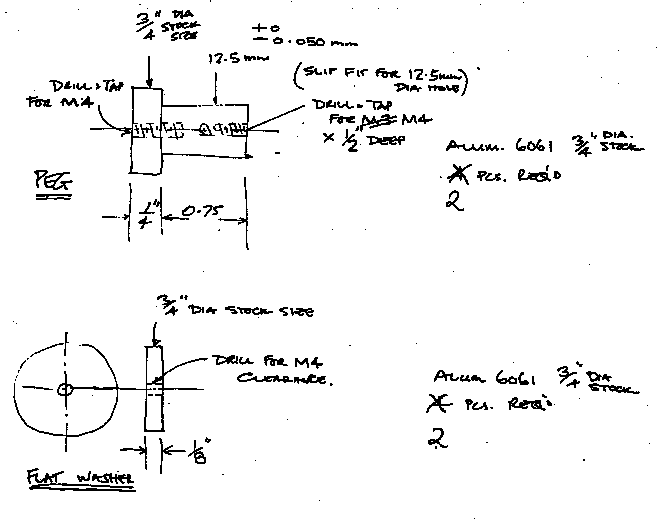 3/4" DIA
STOCK
SIZE
+0
- 0.050 mm
12.5 mm
(SLIP FIT FOR 12.5mm
DIA HOLE)
DRILL & TAP
FOR M4
DRILL & TAP
FOR M3 M4
x 1/2" DEEP
ALUM. 6061 3/4" DIA.
STOCK
PCS. REQ'D
2
PEG
1/4"
0.75
3/4" DIA STOCK SIZE
DRILL FOR M4
CLEARANCE.
ALUM 6061 3/4" DIA
STOCK
PCS. REQ'D
2
1/8"
FLAT WASHER